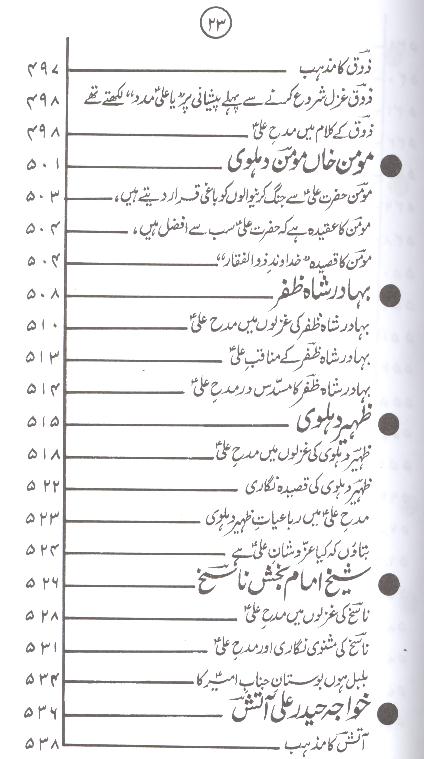 ۲۳
ذوقؔ کا مذہب ۴۹۷
ذوقؔ غزل شروع کرنے سے پہلے پیشانی پر ”یا علیؑ مدد“ لکھتے تھے ۴۹۸
ذوقؔ کے کلام میں مدحِ علیؑ ۴۹۸
مومن خاں مومنؔ دہلوی ۵۰۱
مومنؔ حضرت علیؑ سے جنگ کرنیوالوں کو باغی قرار دیتے ہیں، ۵۰۳
مومنؔ کا عقیدہ ہے کہ حضرت علیؑ سب سے افضل ہیں، ۵۰۴
مومنؔ کا قصیدہ ”خداوندِ ذوالفقار“ ۵۰۴
بہادر شاہ ظفر ۵۰۸
بہادر شاہ ظفرؔ کی غزلوں میں مدحِ علیؑ ۵۱۰
بہادر شاہ ظفرؔ کے مناقبِ علیؑ ۵۱۳
بہادر شاہ ظفرؔ کا مسدّس در مدحِ علیؑ ۵۱۴
ظہیر دہلوی ۵۱۵
ظہیرؔ دہلوی کی غزلوں میں مدحِ علیؑ ۵۱۸
ظہیرؔ دہلوی کی قصیدہ نگاری ۵۲۲
مدحِ علیؑ میں رباعیاتِ ظہیرؔ دہلوی ۵۲۳
بتاؤں کہ کیا عزّ و شانِ علیؑ ہے ۵۲۴
شیخ امام بخش ناسخؔ ۵۲۶
ناسخؔ کی غزلوں میں مدحِ علیؑ ۵۲۸
ناسخؔ کی مثنوی نگاری اور مدحِ علیؑ ۵۳۱
بلبل ہوں بوستانِ جنابِ امیرؑ کا ۵۳۴
خواجہ حیدر علی آتشؔ ۵۳۶
آتشؔ کا مذہب ۵۳۸